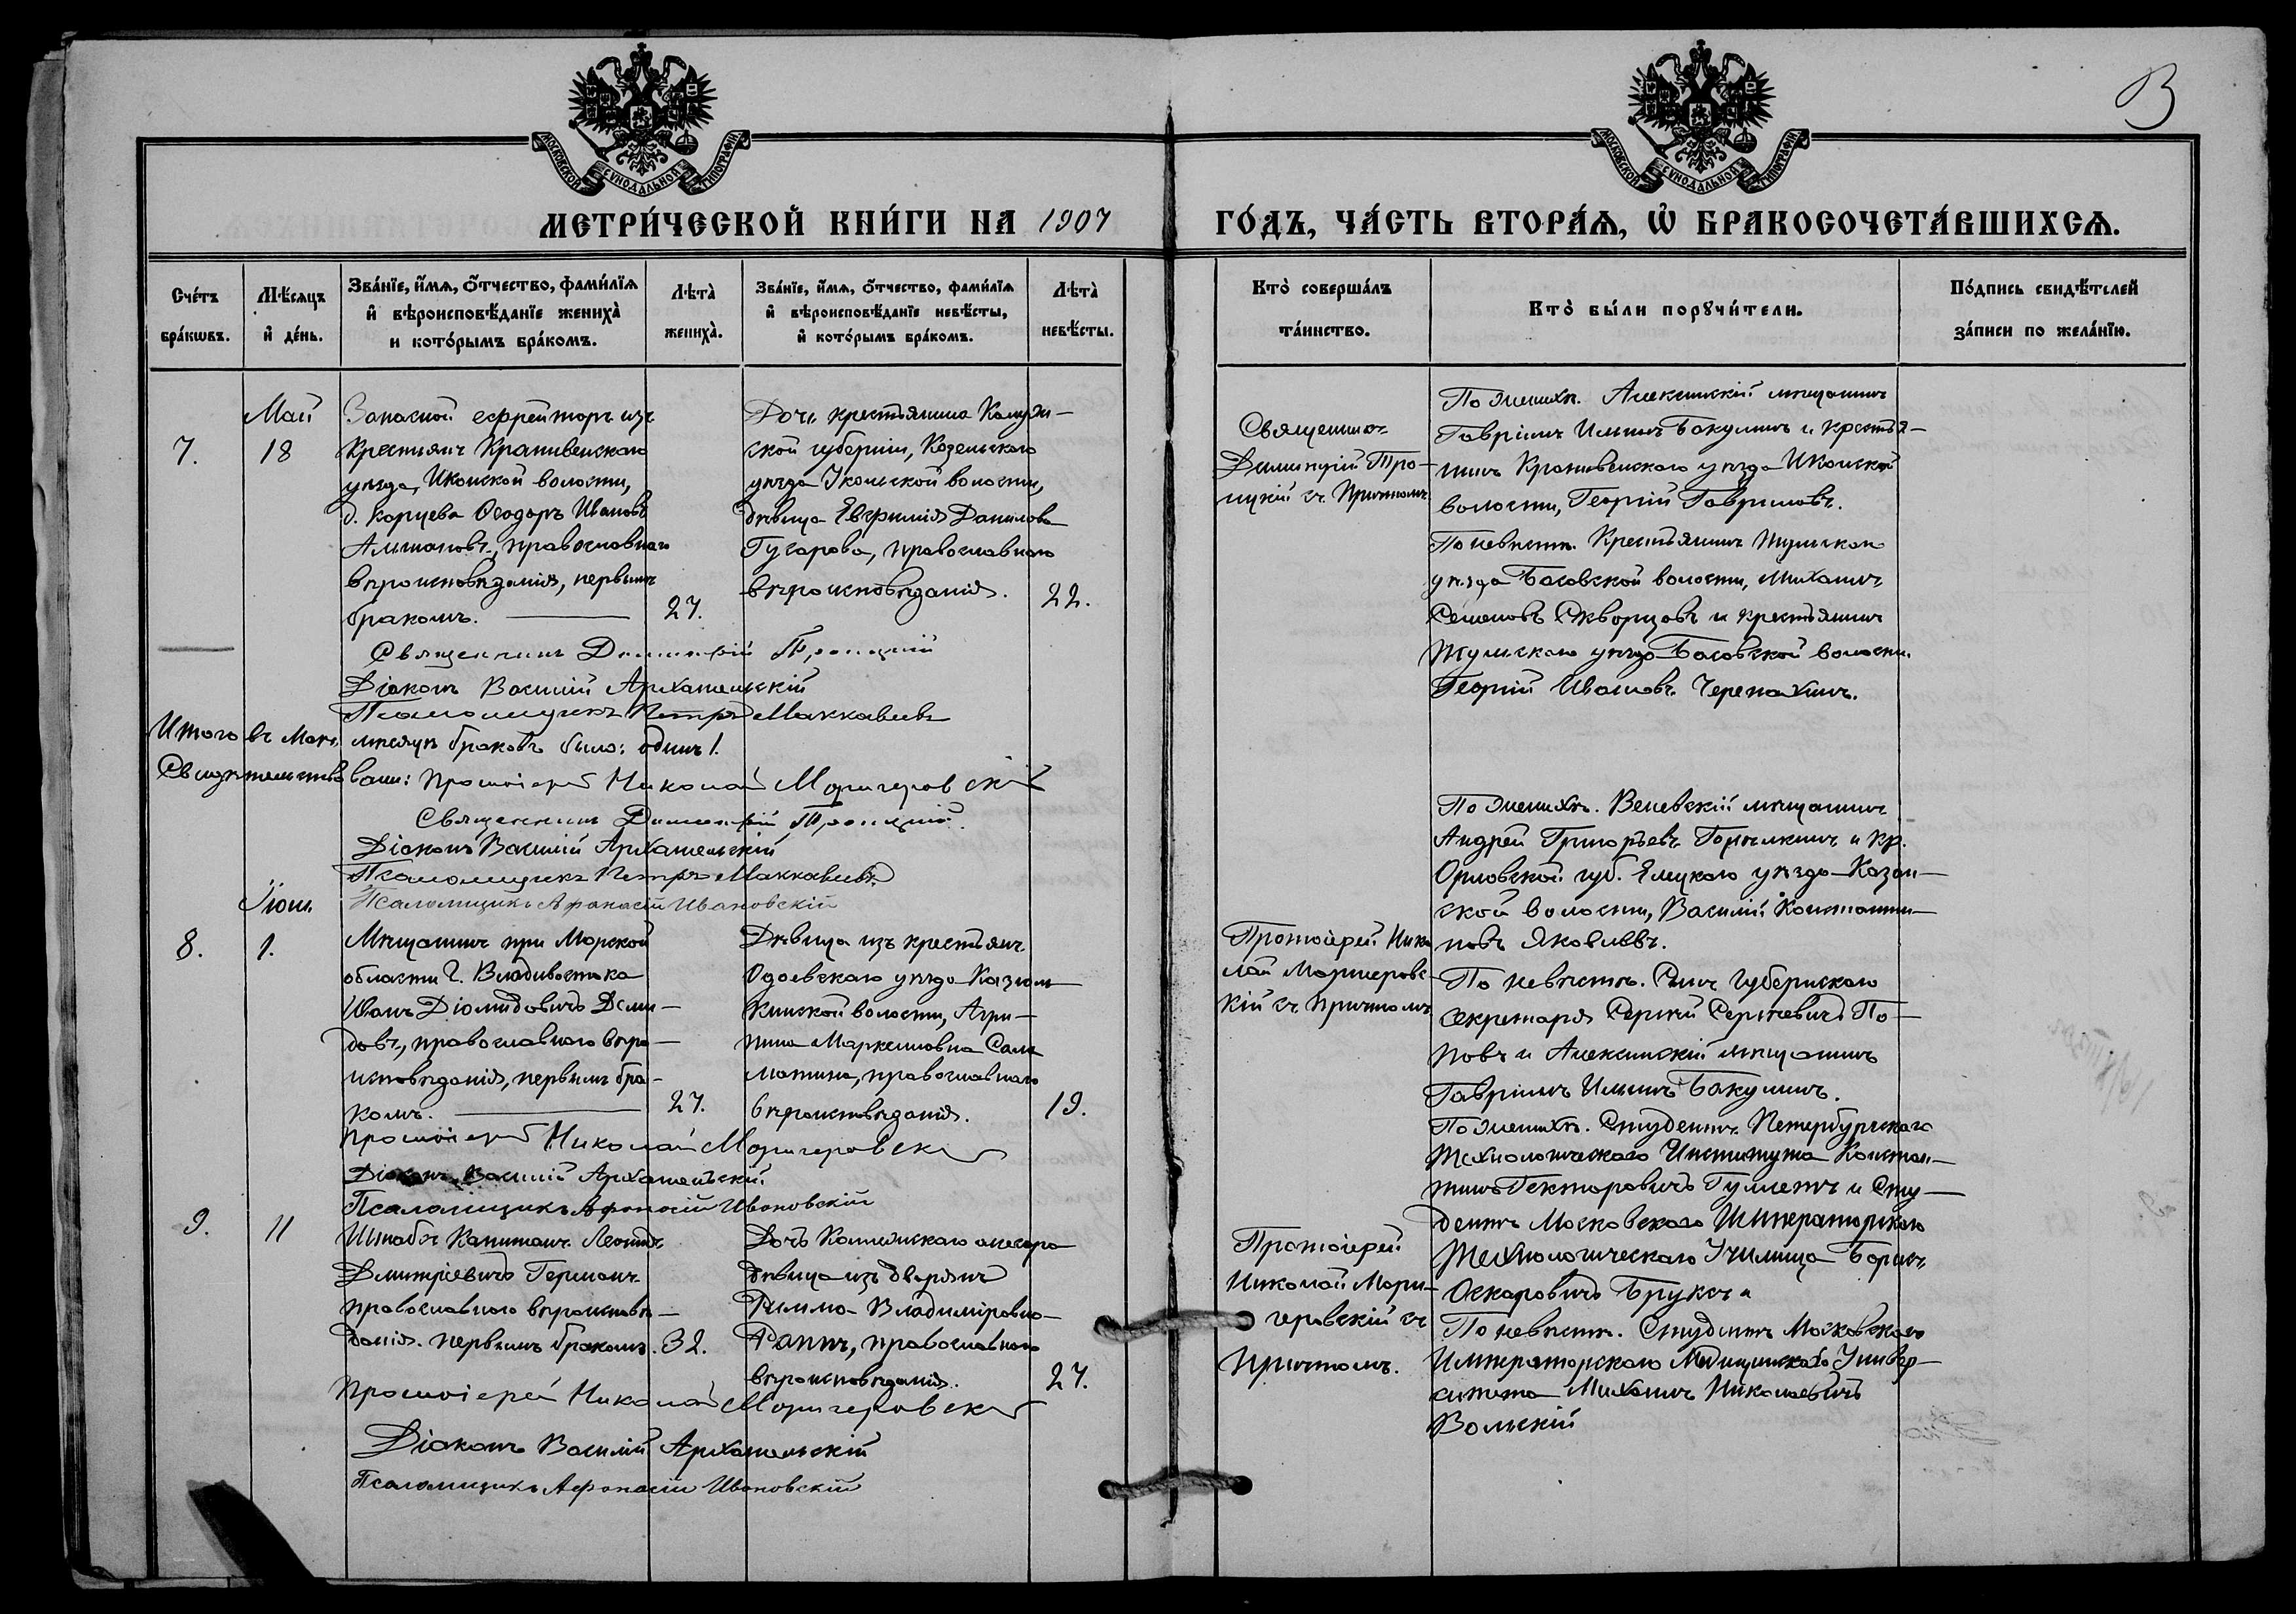 МОСКОВСКОЙ СѴНОДАЛЬНОЙ ТИПОГРАФІИ
МОСКОВСКОЙ СѴНОДАЛЬНОЙ ТИПОГРАФІИ
МЕТРИ́ЧЕСКОЙ КНИ́ГИ НА 1907 ГО́ДЪ, ЧА́СТЬ ВТОРА́Ѧ, Ѽ БРАКОСОЧЕТА́ВШИХСѦ.
Сче́тъ бра́кѡвъ.
Мѣ́сяцъ и҆ де́нь.
Зва́нїе, и҆́мѧ, ѻ҆́тчество, фами́лїѧ
и҆ вѣроисповѣ́данїе жениха̀
и кото́рымъ бра́комъ.
Лѣта̀ жениха̀.
Зва́нїе, и҆́мѧ, ѻ҆́тчество, фами́лїѧ
и҆ вѣроисповѣ́данїе невѣ́сты,
и҆ кото́рымъ бра́комъ.
Лѣта̀ невѣ́сты.
Кто̀ соверша́лъ та́инство.
Кто̀ бы́ли порꙋчи́тели.
По́дпись свидѣ́телей за́писи по жела́нїю.
7.
Май
18
Запасной ефрейторъ изъ
крестьянъ Крапивенскаго
уѣзда, Иконской волости,
д. Карцева Ѳеодоръ Ивановъ
православнаго
вѣроисповѣданія, первымъ
бракомъ.
27.
Дочь крестьянина Калуж-
ской губерніи, Козельскаго
уѣзда волости,
дѣвица Евфимія Данилова
Гусарова, православнаго
вѣроисповѣданія.
22.
Священникъ
Димитрій Тро-
ицкій съ причтомъ
По женихѣ. Алексинскій мѣщанинъ
Гавріилъ Ильинъ Бакулинъ и крестья-
нинъ Крапивенскаго уѣзда Иконской
волости, Георгій Гавриловъ.
По невѣстѣ. Крестьянинъ Тульскаго
уѣзда Басовской волости, Михаилъ
Семеновъ Скворцовъ и крестьянинъ
Тульскаго уѣзда Басовской волости
Георгій Ивановъ Черепахинъ.
Священникъ Димитрій Троицкій
Діаконъ Василій Архангельскій
Псаломщикъ Петръ Маккавеевъ
Итого въ Маѣ мѣсяцѣ браковъ было: одинъ 1.
Свидѣтельствовали: Протоіерей Николай Моригеровскій
Священникъ Димитрій Троицкій.
Діаконъ Василій Архангельскій
Псаломщикъ Петръ Маккавеевъ.
Псаломщикъ Афанасій Ивановскій
8.
Іюнь
1.
Мѣщанинъ при Морской
области г. Владивостока
Иванъ Діомидовичъ Деми-
довъ, православнаго вѣро-
исповѣданія, первымъ бра-
комъ.
27.
Дѣвица изъ крестьянъ
Одоевскаго уѣзда
волости, Агри-
пина Маркеловна Сала-
матина, православнаго
вѣроисповѣданія.
19.
Протоіерей Нико-
лай Моригеровс-
кій съ причтомъ
По женихѣ. Веневскій мѣщанинъ
Андрей Григорьевъ Горѣлкинъ и кр.
Орловской губ. Елецкаго уѣзда Казан-
ской волости, Василій Константи-
новъ Яковлевъ.
По невѣстѣ. Сынъ Губернскаго
секретаря Сергѣй Сергѣевичъ По-
повъ и Алексинскій мѣщанинъ
Гавріилъ Ильинъ Бакулинъ.
Протоіерей Николай Моригеровскій
Діаконъ Василій Архангельскій
Псаломщикъ Афанасій Ивановскій
9.
11
Штабсъ Капитанъ Леонидъ
Дмитріевичъ Германъ
православнаго вѣроисповѣ-
данія. первымъ бракомъ.
32.
Дочь Коллежскаго асесора
дѣвица изъ дворянъ
Римма Владиміровна
православнаго
вѣроисповѣданія.
27.
Протоіерей
Николай Мори-
геровскій съ
причтомъ.
По женихѣ. Студентъ Петербургскаго
Технологическаго Института Констан-
тинъ Гекторовичъ и Сту-
дентъ Московскаго Императорскаго
Технологическаго Училища Борисъ
Оскаровичъ Бруксъ
По невѣстѣ. Студентъ Московскаго
Императорскаго Медицинскаго Универ-
ситета Михаилъ Николаевичъ
Вольскій
Протоіерей Николай Моригеровскій
Діаконъ Василій Архангельскій
Псаломщикъ Афанасій Ивановскій